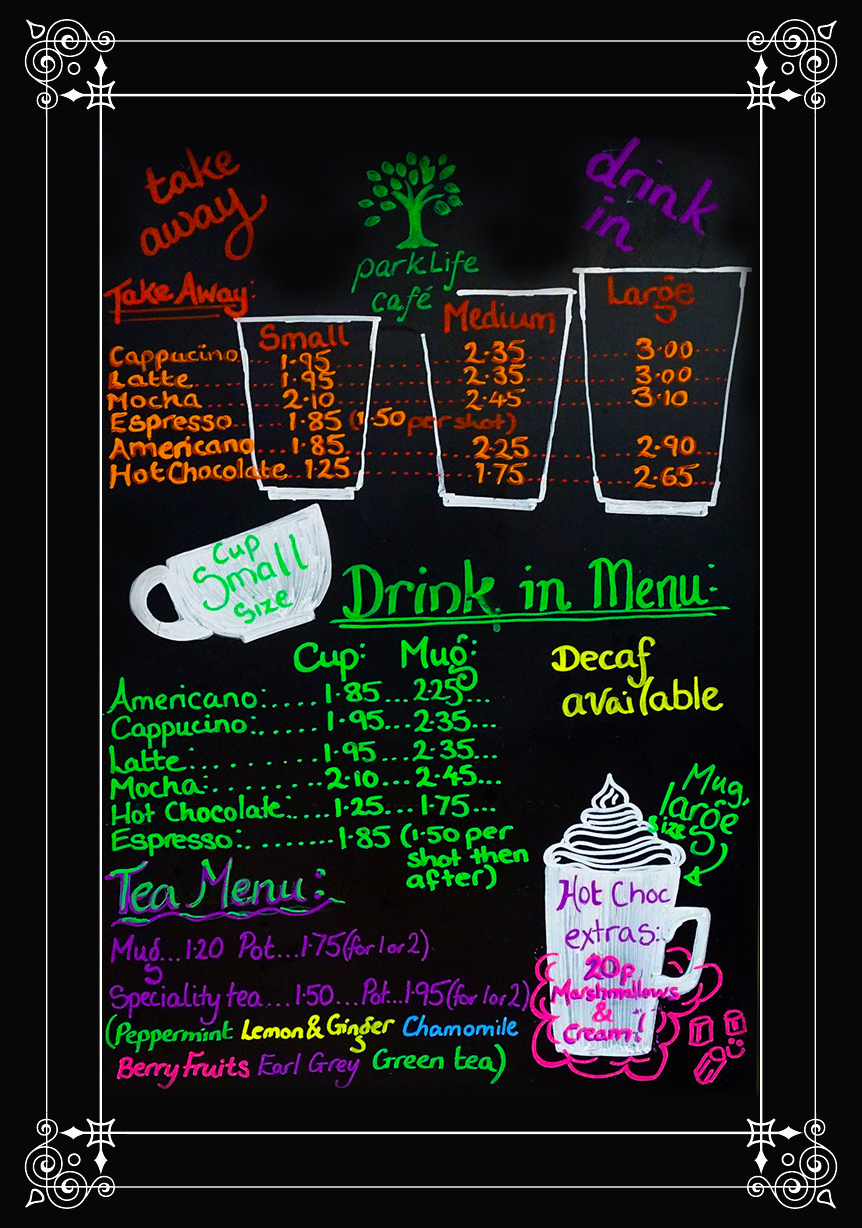 take
away
parkLife
café
drink
in
Take Away:
Small Medium Large
Cappucino 1.95 2.35 3.00
Latte 1.95 2.35 3.00
Mocha 2.10 2.45 3.10
Espresso 1.85 (1.50 per shot)
Americano 1.85 2.25 2.90
Hot Chocolate 1.25 1.75 2.65
Cup
Small
Size
Drink in Menu:
Cup: Mug:
Americano:.....1.85...2.25...
Cappucino:.....1.95...2.35...
Latte:........1.95...2.35...
Mocha:........2.10...2.45...
Hot Chocolate:....1.25...1.75...
Espresso:........1.85 (1.50 per
shot then
after)
Decaf
available
Mug,
large
size
Hot Choc
extras:
20p
Marshmallows
&
Cream!
Tea Menu:
Mug...1.20 Pot...1.75(for 1 or 2)
Speciality tea...1.50...Pot...1.95(for 1 or 2)
(Peppermint Lemon & Ginger Chamomile
Berry Fruits Earl Grey Green tea)